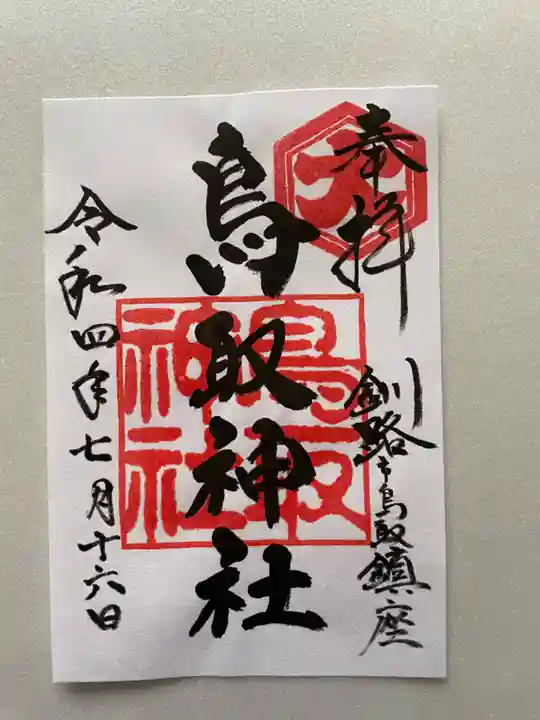 奉拝
釧路市鳥取鎮座
大
鳥取神社
鳥取
神社
令和四年七月十六日